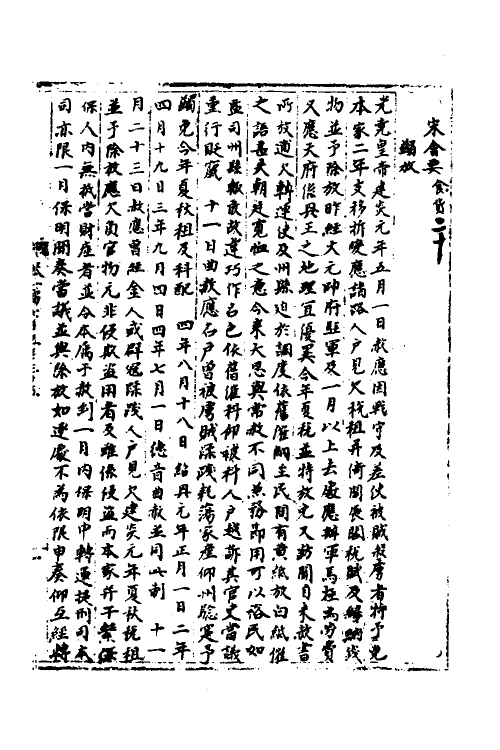 宋會要 食貨二十
蠲放
光堯皇帝建炎元年五月一日赦應因戰守及差伏被賊殺虜者特予免
本家二年支移折變應諸路人戶見欠稅租并倚閣展閣稅賦及解納錢
物並予除放昨經大元帥府駐軍及一月以上去處應辦軍馬極為勞費
又應天府係興王之地理宜優異今年夏稅並特放免又訪聞自來赦書
所放逋欠轉運使及州縣迫於調度依舊催納至民間有黃紙放白紙催
之語甚失朝廷寬恤之意今來大恩與常赦不同兼務即用可以裕民如
監司州縣輒敢故違巧作名色依舊催科仰被科人戶越訴其官吏當議
重行貶竄 十一日曲赦應石戶曾被虜賊蹂踐耗蕩家產仰州驗實予
蠲免今年夏秋租及科配 四年八月十八日紹興元年正月一日二年
四月十九日三年九月四日四年七月一日德音曲赦並同此制 十一
月二十三日赦應曾經金人或群寇蹂踐人戶見欠建炎元年夏秋稅租
並予除放應欠負官物元非侵欺盜用者及雖係侵盜而本家并干繫保
保人內無抵當財產者並令本屬于赦到一月內保明申轉運提刑司本
司亦限一月保明聞奏當議並與除放如違處不為依限申奏仰互經將